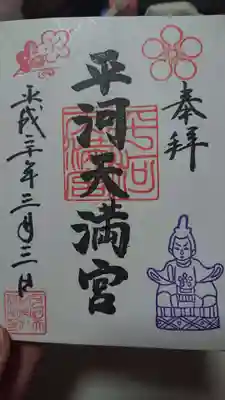 奉拝
平河天満宮
平成三十年三月三日